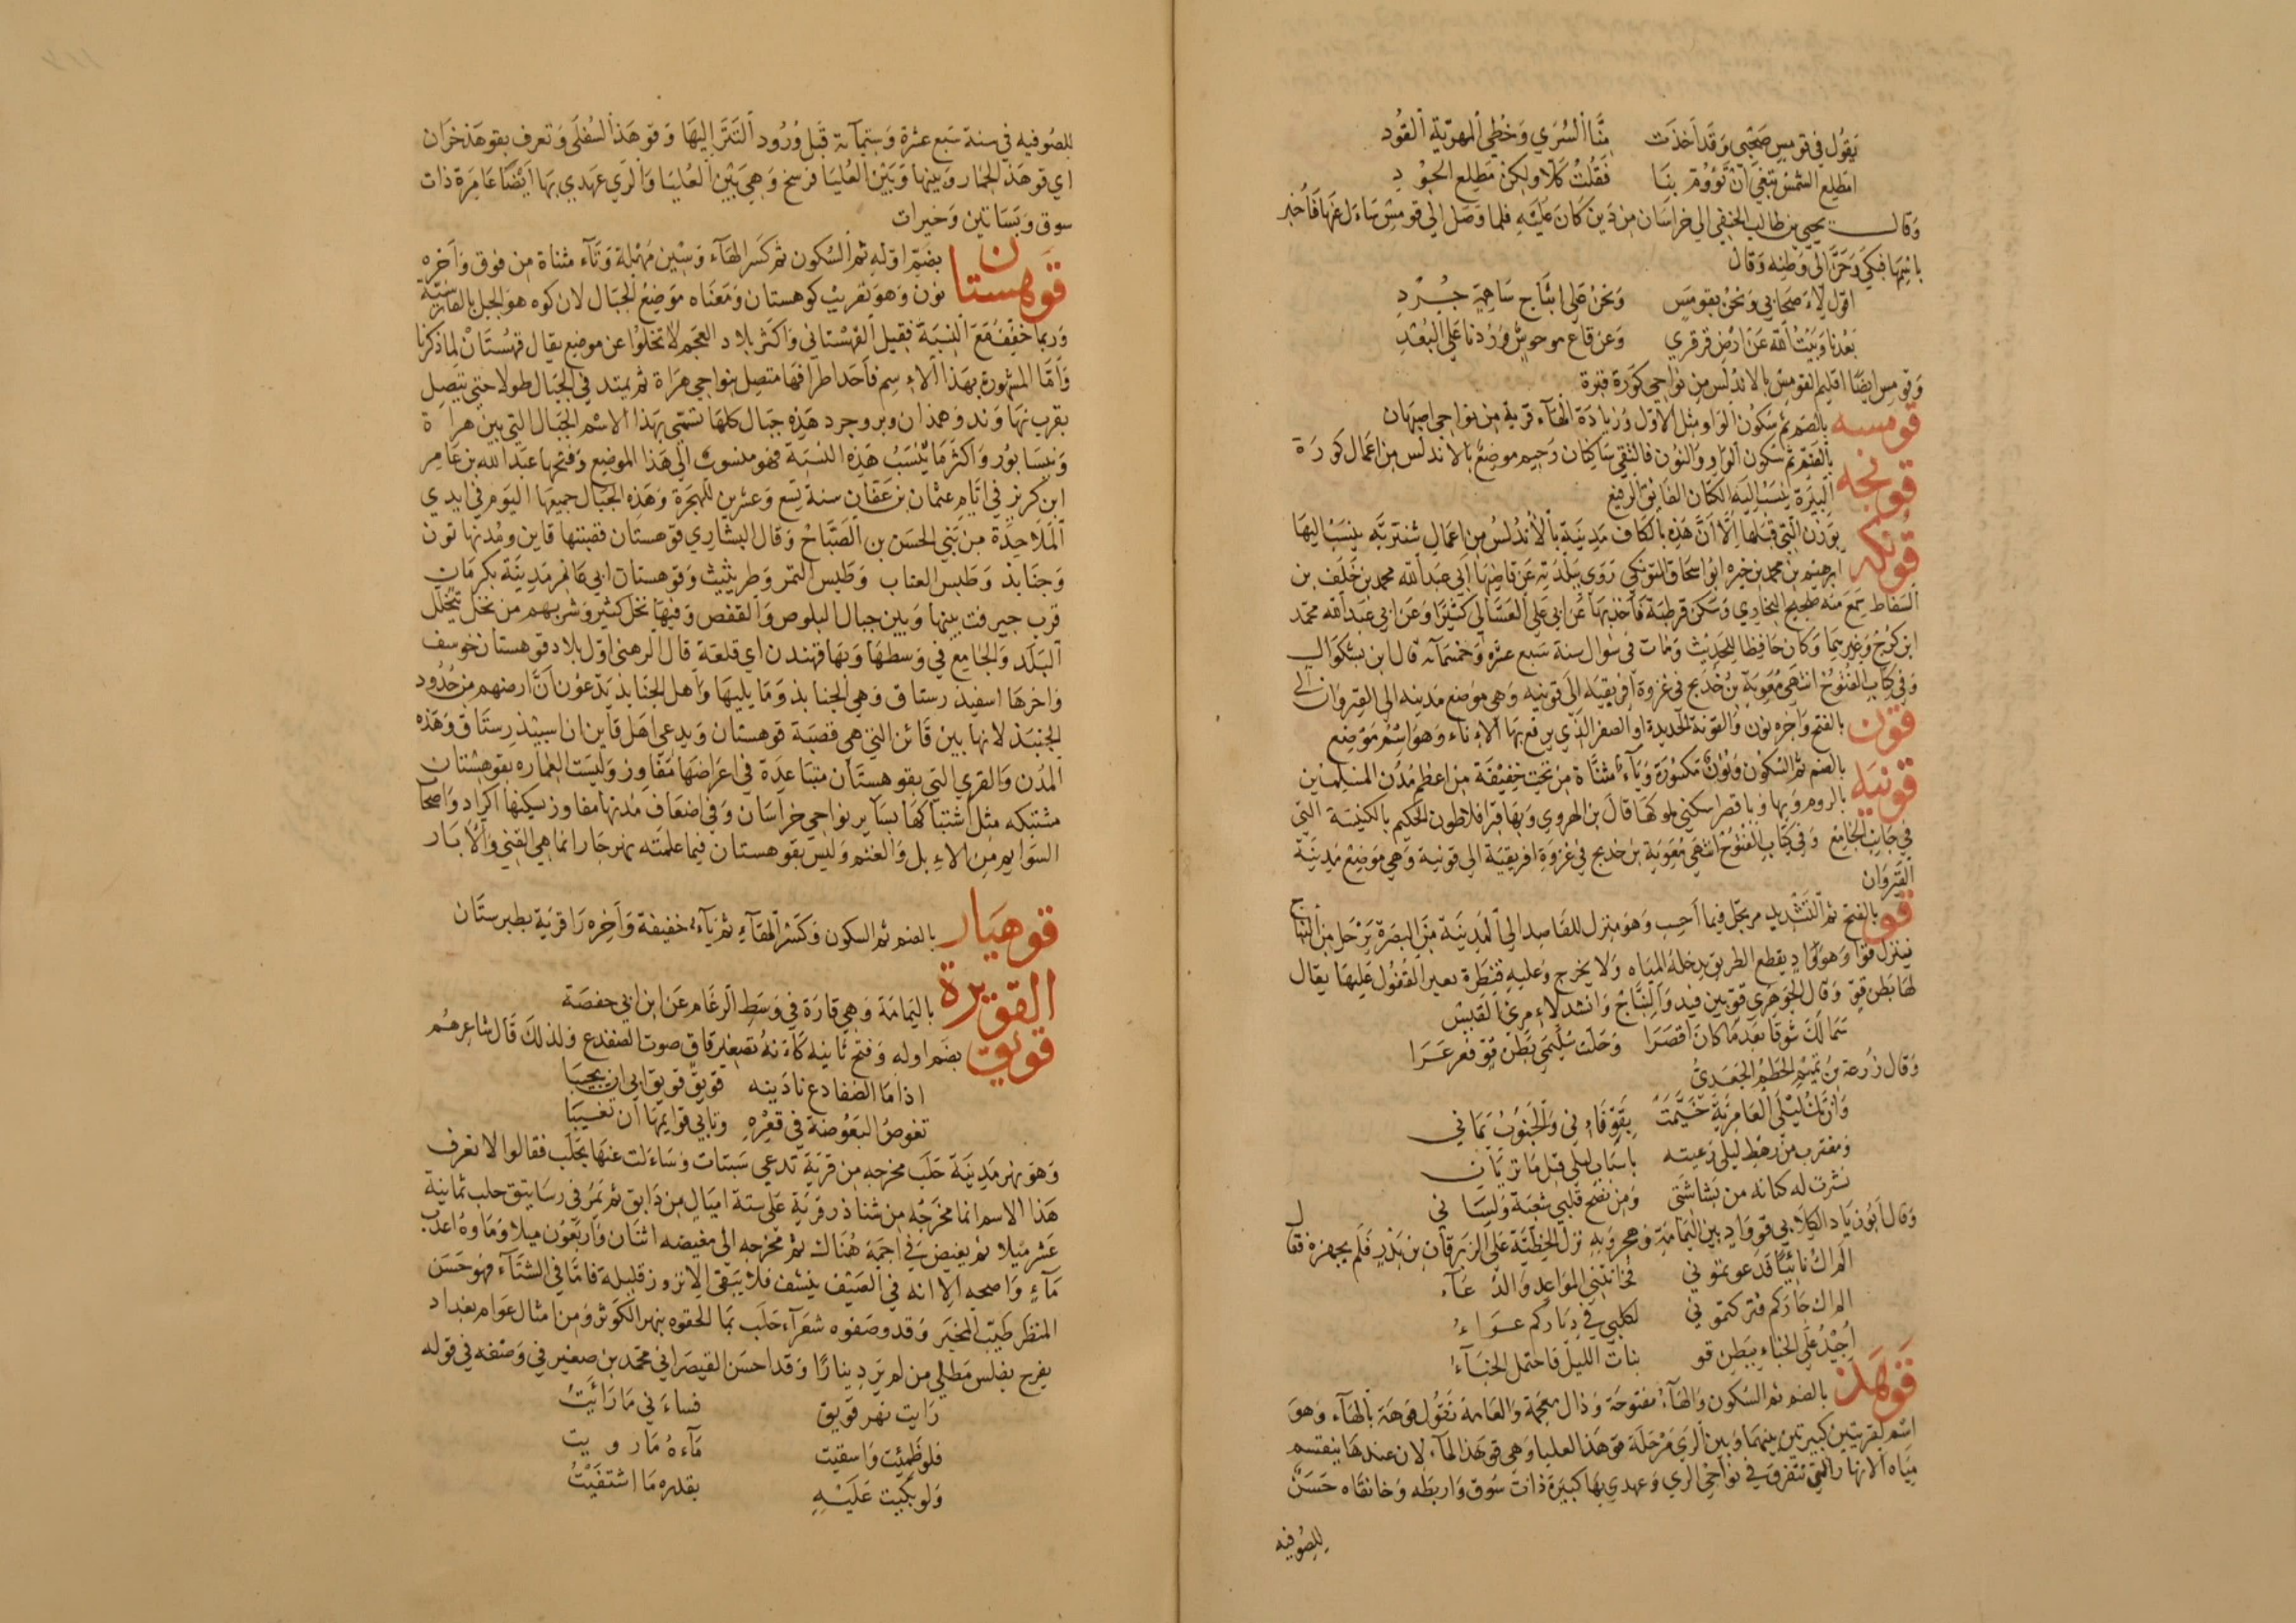 يَقُولُ في قومِسٍ صَحْبِي وَقَد أخَذَت مِنَّا السُّرَي وَخُطي المهرِيّةِ القُود
امَطلِع الشمسُ تبغي أنْ تَؤُوُمّ بِنَا فَقُلْتُ كَلّا وَلكِنْ مَطلِع الجُوْدِ
وَقالــت يحيي بن طالب الحنفي الي خراسَان من دَين كَانَ عَلَيْهِ فلما وَصَل إلي قومِسْ سَاءَل عَنها فَأُخبر
بابِنَيهَا فبكي وَحَنَّ الَي وَطنِه وَقال
اقول لاءَصحَابي وَنحنُ بقومَسٍ وَنحنُ عَلي اثبَاج سَاهِمَةٍ جُــرْدِ
بَعُدنا وَبَيْتُ اللّه عَنْ ارْضِ قرقري وَعَن قاع موحوشٍ وَزُدنا عَلي البُعْدِ
وَقومِس ايضًا اقليم القومِسْ بالاندلُس من نَواحي كورَة قبرة
قومسه بالضَم ثم سُكون الوَاو مثل الأول وَزيَادَة الهَاء قرية مِن نواحي اصبهان
قونجه بالضَمّ ثم سُكون الواو وَالنون فالتقي سَاكِنان وَجيم موضِعٌ بالاندلُس من اعمَال كورَة
البيرَة يُنسَبُ اليَهِ الكتّان الفَائق الرفيع
قونكه بَوَزن التي قبلهَا الّا انَّ هَذِه بالكاف مَدينَة بالأندلُسْ من اعمَال شنتربّه يُنسَبُ اليهَا
ابرهيم بن محمد بن خيره ابوُ اسحَاق القونكي رَوَي ببَلَدِه عَن قاضِيهَا ابي عَبدالله محمد بن خَلَف بن
السَقاط سَمعَ مَنه صَحيح البخَاري وَسَكن قرطبة فأخذ بهَا عَن ابي عَلي الغَسَّاني كَثيرًا وَعَن ابي عَبد الله محمّد
ابن فَرَج وَغيرهمَا وَكان حَافِظا للحَديث وَمَات في شوال سنة سَبع عشرَة وَخمسمَآئة قال ابن بشكوَال
وَفي كِتاب الفُتُوح انتَهي مُعَوِيَة بنُ خُدَيج في غزوة افريقية الي قونيه وَهي مَوضع مَدينة القيروَان
قَوْن بالفتح وَآخِره نون وَالقونة الحديدة او الصفر الذي يرقع بهَا الاءناء وَهوَ اسْمُ مَوضِع
قونيَه بالضم ثم السُكون وَنونٌ مَكسُورَة وَيَآءٌ مُثنّاة من تحت خفيفَة من اعظم مُدُن المسلمين
بالروم وَبها وَباقصرا سكني ملوكهَا قالَ بن الهروي وَبهَا قبر افلاطون الحكيم بالكنيسَة التي
في جَانِبِ الجَامِع وَفي كِتَاب الفُتُوحْ انتهَي مُعَوِيَة بن خديج في غزوَة افريقية الي قونية وَهي مَوضِعْ مَدينة
القَيْرَوَان
قو بالفتح ثم التّشديد مرتجل فيما أَحِب وَهوَ منزل للقَاصِد الي الَمدِينَة مِن البصرَة يَرْحَل من النّبَاج
فينزل قَوّا وَهوَ وَادٍ يقطع الطريق يدخلهُ المِيَاه وَلا يخرج وَعليهِ قنطرة يعبر القُفُول عَليهَا يقال
لهَا بَطن قوٍّ وَقال الجَوهَري قوّ بَين فَيْد وَالنّبَاجُ وَانشد لاءِمرئ القَيس
سَمَا لَكَ شَوقا بَعد مَا كانَ اقصَرَا وَحَلّتْ سُلَيْمي بَطْن قَوّ فعَرعَرَا
وَقال زُرعة بن تَميْم الحُطَمْ الجَعَدِيُّ
وَان تَكُ لَيلَي العَامِريَةُ خَيَّمَتْ بِقَوٍّ فَاءِني وَالجَنُوبُ يَمَاني
وَمغترب مِن رَهْط لَيلي رَعيته باسبَاب لَيلي قبل مَا تريَانِ
نَشرت له كنانه من بَشاشَتي وَمن نصح قلبي شُعبَة وَلِسَاني
وَقال أبُو زيَاد الكِلَابي قو وَادٍ بين اليَمامَةِ وَهجر وَبِه نَزل الحُطَيئة عَلي الزبرقان بن بَدْرٍ فَلَم يجهزه فقال
الم اك نائيًا قد عوتموني فخانَتني المَواعِدُ وَالدُّعَآءُ
الم اك جَارَكم فتركتموني لكلبي في دِيَاركم عُــوَاءُ
اُجِيْدُ عَلي الخباء بِبَطن قو بنَاتُ اللّيل فَاحتمل الخبَآءُ
قَوْهَذ بالضم ثم السُكون وَالهَآءُ مَفتوحَة وَذال معجمَة وَالعَامة تَقُول قوهَة بالهَآء وَهوَ
اسْم لقريتين كبيرتين بينهمَا وَبين الرَي مَرْحَلَة قوهَذ العليا وَهي قوهَذ المآء لان عندهَا ينقسم
مِيَاه الانهار التي تتفرق في نَواحيْ الري وَعهدي بهَا كَبيرَة ذَات سُوق وَاربطَه وَخانقاه حَسَنٌ
للصُوفيه
للصُوفيه في سنة سَبع عشرَة وَستمآئة قَبل وُرُود التَتَر إليهَا وَقوهَذ السُفلَي وَتعرف بقوهَذ خَرَان
اي قوهَذ الحِمَار وَبينها وَبَيْن العُليَا فَرسخ وَهي بَيْن العُليَا وَالرَي عهدي بهَا ايْضًا عَامِرَة ذات
سوق وَبسَاتين وَخيرات
قوهستان بضَمّ اوّلهِ ثم السُكون ثم كَسر الهآء وَسِيْن مُهمَلة وَتَآء مثناة من فوق وَآخره
نون وَهوَ تعريبْ كوهستان وَمَعنَاه مَوضِعُ الجبَال لان كوه هوَ الجبل بالفارسيّة
وَربما خفِّفَ مَعَ النِسبَة فقيل القُهُستاني وَاكثر بلاد العَجَم لا تخلوُا عن موضِع يقال قهُستَانْ لما ذكرنا
وَأمّا المشهورَة بهَذا الاءسم فأحَد اطرافهَا متصِل بنواحي هرَاة ثم يمتد في الجبَال طولا حتي يتّصِل
بقرب نهَاوَند وَهمذان وَبروجرد هَذِه جبَال كلهَا تسَمّي بهَذا الاسْم الجبَال التي بين هراة
وَنيسَابور وَاكثر مَا يُنسَبُ هَذِه النسبَة فهوَ منسوبُ الي هَذا الموضع وَفتحهَا عبد الله بن عَامِر
ابن كريز في ايّام عثمان بن عَفّان سنة تِسع وَعشرين للهجرَة وَهَذِه الجبَال جميعهَا اليَوم في ايدي
المَلاحِدَة مِن بَني الحسَن بن الصَبَّاحْ وَقال البشاري قوهستان قصَبتها قاين وَمُدنها تون
وَجنَابذ وَطبس العناب وَطَبس التمر وَطريثيث وَقوهستان ابي غانم مَدينَة بكرمَان
قرب جيرفت بينها وَبين جبال البلوص وَالقفص وَفيهَا نخل كثير وَشربهم من نخل تتخلّل
البَلَد وَالجَامع في وَسطهَا وَبهَا قهندز اي قلعَة قال الرهني اوّل بلاد قوهستان خوسف
وَاخرهَا اسفيذ رستاق وَهي الجنابذ وَمَا يليهَا وَأهل الجنَابذ يَدّعون انّ ارضهم من حُدُود
الجُنبَذ لانها بين قائن التي هي قصَبَة قوهستان وَيدعي اهَل قاين ان اسبيذ رِستَاق وَهَذِه
المدُن وَالقري التي بقوهِستَان متبَاعِدَة في اعرَاضهَا مَفَاوِز وَليسَت العمَاره بقوهِستان
مشتبكه مثل اشتباكهَا بسَاير نواحي خراسَان وَفي اضعَاف مُدنها مفاوز يسكنها اكراد وَاصحَا
السَوايم مِن الاءبل وَالغنم وَليسَ بقوهستان فيما علمته نهر جَار انما هي القني وَالآبَار
قوهيَار بالضم ثم السكون وَكسر الهآء ثم يآءٌ خفيفة وَآخِره رَا قريَة بطبرستَان
القويرة باليَمامَة وَهي قارَة في وَسَط الرغَام عَن ابن ابي حفصَة
قويق بضَم اوله وَفتح ثانيه كأنهُ تصغير قاق صوت الضفدع وَلذلكَ قال شاعرهُم
اذا مَا الضفادع نادَينه قويق قويق ابي ان يجيبَا
تغوصُ البَعُوضة في قعْرهِ وَتابي قوايمهَا أن تغيبَا
وَهوَ نهر مَدينَة حَلَب مخرجه من قريَة تدعي سَبتات وَسَاءَلت عنهَا بحَلَب فقالوا لا نعرف
هَذا الاسم انما مخرَجُه من شناذر قريَة عَلي ستة اميَال من دَابق ثم يَمُرّ في رسَاتيق حلب ثمانية
عَشر مِيلا ثم يغيض في اجمَة هُنَاك ثم مخرجه الي مغيضه اثنَان وَاربَعُون ميلا وَمَاوهُ اعذب
مَآءٍ وَاصحه الا انه في الصَيْف ينشف فلا يَبقي الا نزوز قليلة فامّا في الشتَآء فهُو حَسَن
المنظر طَيّب المخبَر وَقد وَصَفوه شعَرآء حَلَب بمَا الحقوه بنهر الكَوثر وَمِن امثال عَوام بغداد
يفرح بفلس مَطلي من لم يَر دِينارًا وَقد احسَن القيصَراني محمّد بن صغير في وَصْفه في قوله
رَايت نهر قويق فساءَني مَا رَأيتُ
فلو ظَمِئت وَاسقيت مَآءهُ مَا رويت
وَلو بَكيت عَلَيْــهِ بقدره مَا اشتفَيْتُ